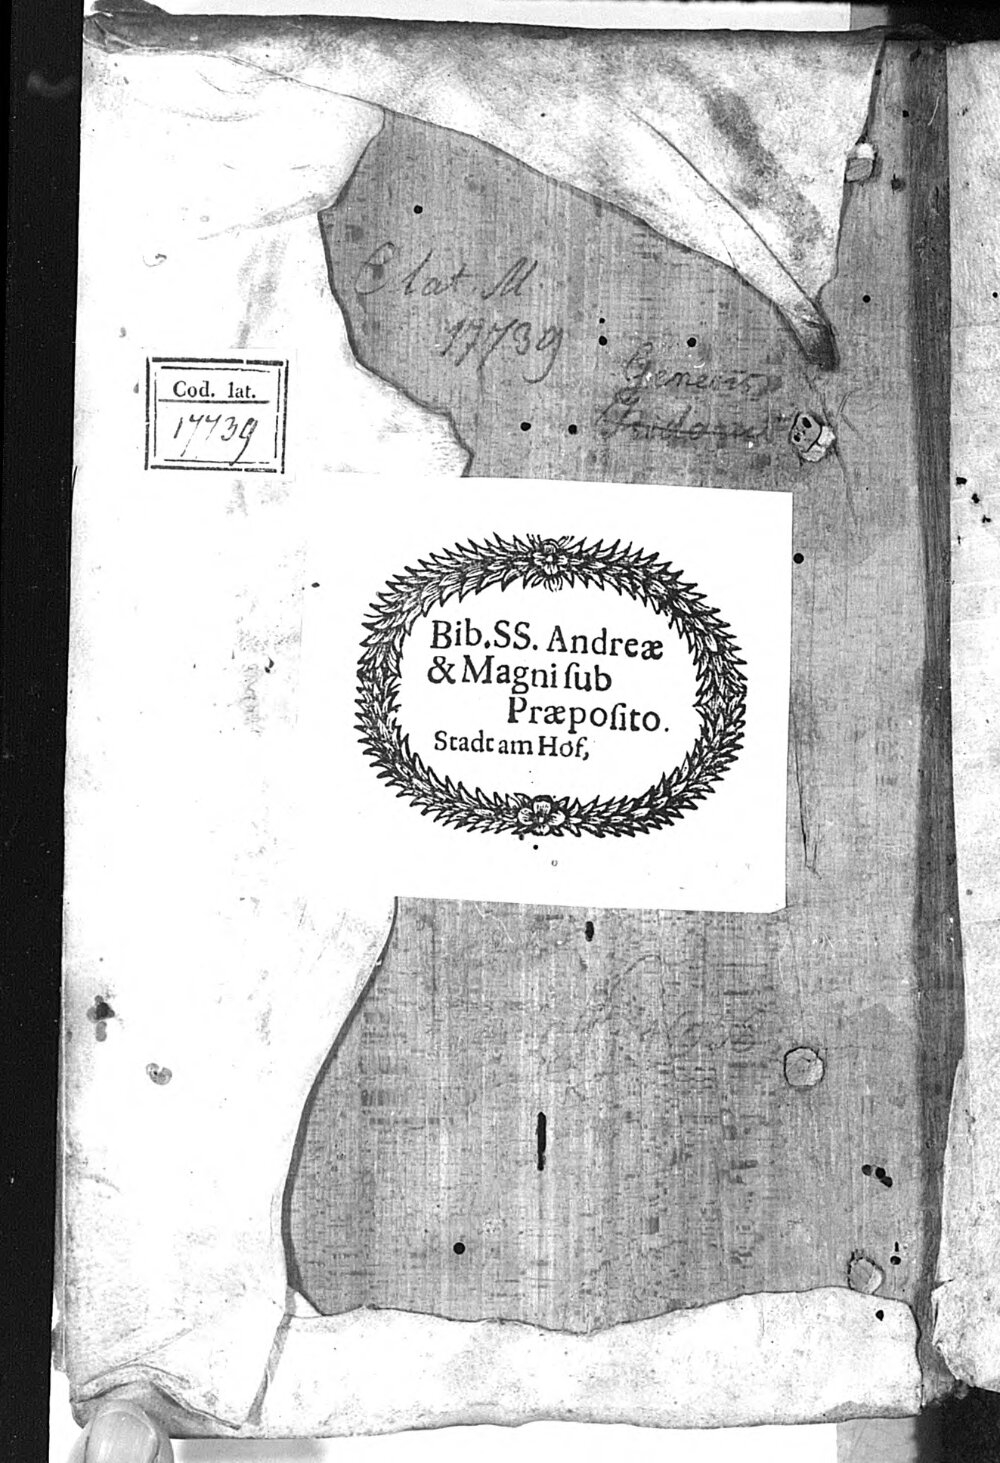 Clat. M.
17739
Genesis
Exodus
Cod. lat.
17739
Bib. SS. Andreæ
& Magni ſub
Præpoſito.
Stadt am Hof,